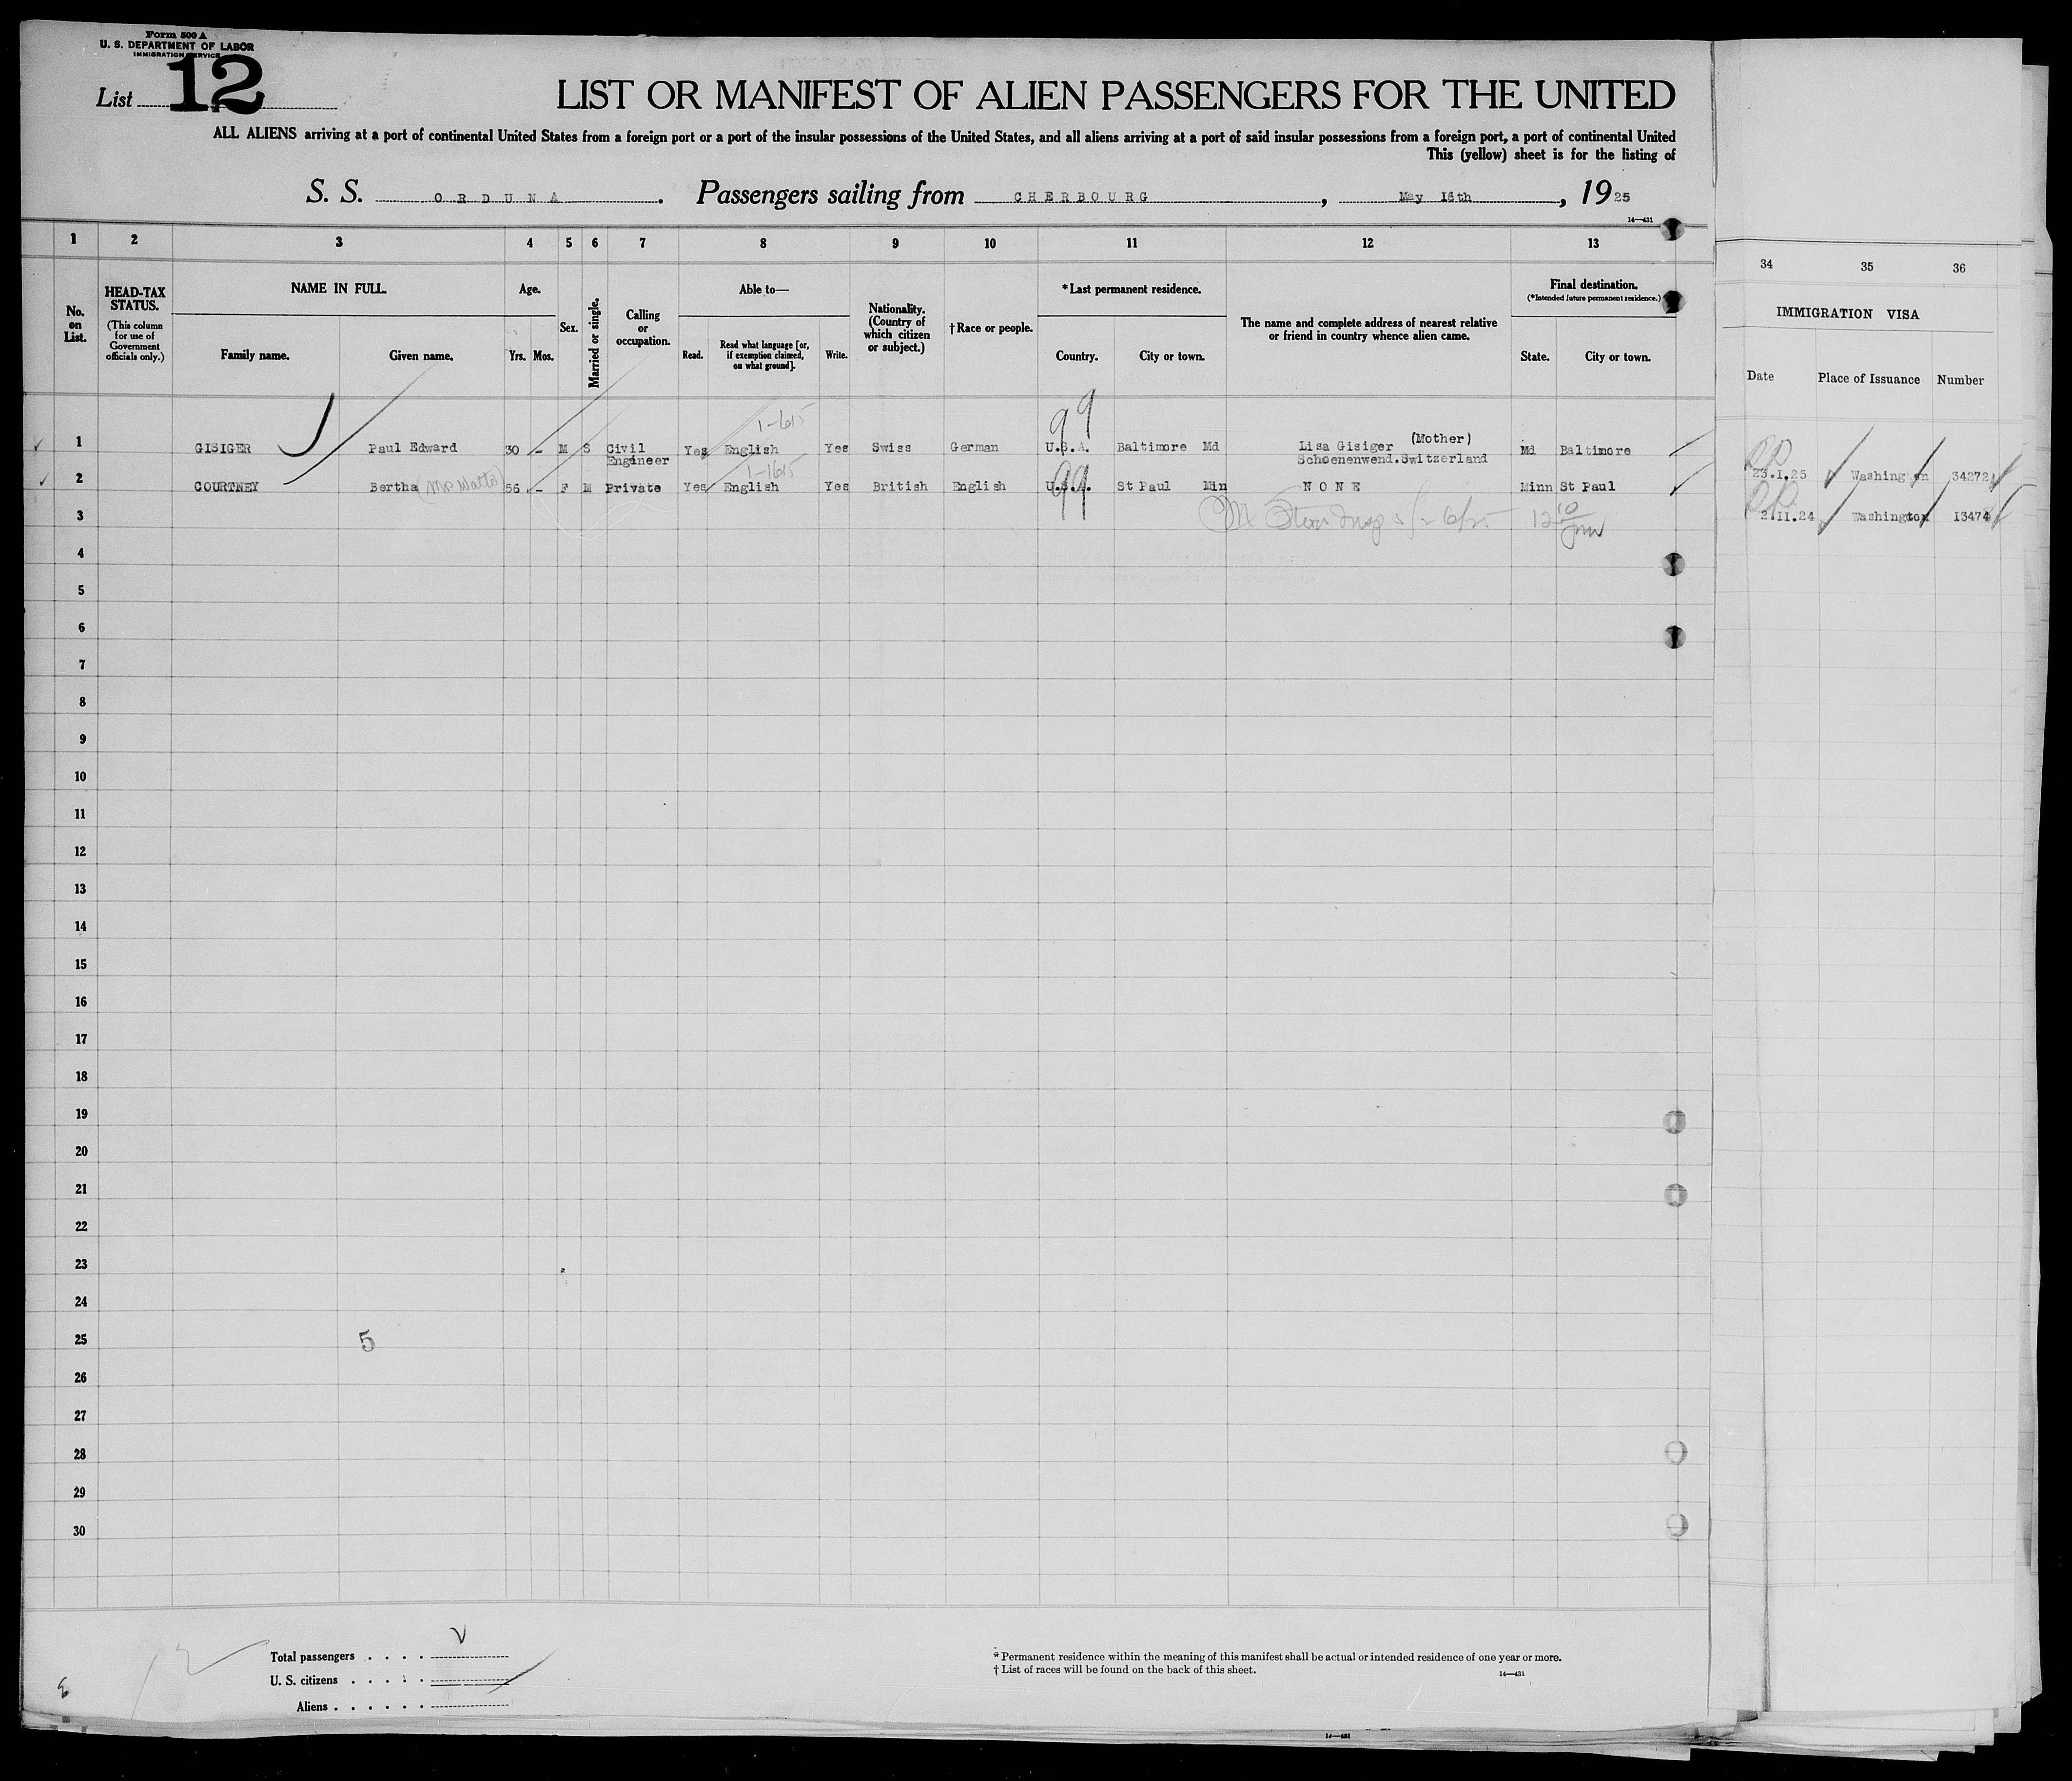 Form 500 A
U. S. DEPARTMENT OF LABOR
IMMIGRATION SERVICE
List 12
LIST OR MANIFEST OF ALIEN PASSENGERS FOR THE UNITED
ALL ALIENS arriving at a port of continental United States from a foreign port or a port of the insular possessions of the United States, and all aliens arriving at a port of said insular possessions from a foreign port, a port of continental United
This (yellow) sheet is for the listing of
S. S. ORDUNA. Passengers sailing from CHERBOURG, May 16th, 1925
14—431
1 2 3 4 5 6 7 8 9 10 11 12 13
34 35 36
No. on List.
HEAD-TAX STATUS.
(This column for use of Government officials only.)
NAME IN FULL.
Family name. Given name.
Age.
Yrs. Mos.
Sex.
Married or single.
Calling or occupation.
Able to—
Read. Read what language [or, if exemption claimed, on what ground]. Write.
Nationality. (Country of which citizen or subject.)
†Race or people.
*Last permanent residence.
Country. City or town.
The name and complete address of nearest relative or friend in country whence alien came.
Final destination.
(*Intended future permanent residence.)
State. City or town.
IMMIGRATION VISA
Date Place of Issuance Number
99
1-615
1 GISIGER Paul Edward 30 - M S Civil Engineer Yes English Yes Swiss German U.S.A. Baltimore Md Lisa Gisiger (Mother) Schoenenwend.Switzerland Md Baltimore 23.I.25 Washington 34272
1-1615
99
2 COURTNEY Bertha 56 - F M Private Yes English Yes British English U.S.A. St Paul Min NONE Minn St Paul 2.II.24 Washington I3474
3
4
5
6
7
8
9
10
11
12
13
14
15
16
17
18
19
20
21
22
23
24
25 5
26
27
28
29
30
Total passengers . . . .
U. S. citizens . . . . .
Aliens . . . . . .
* Permanent residence within the meaning of this manifest shall be actual or intended residence of one year or more.
† List of races will be found on the back of this sheet.
14—431
14—431